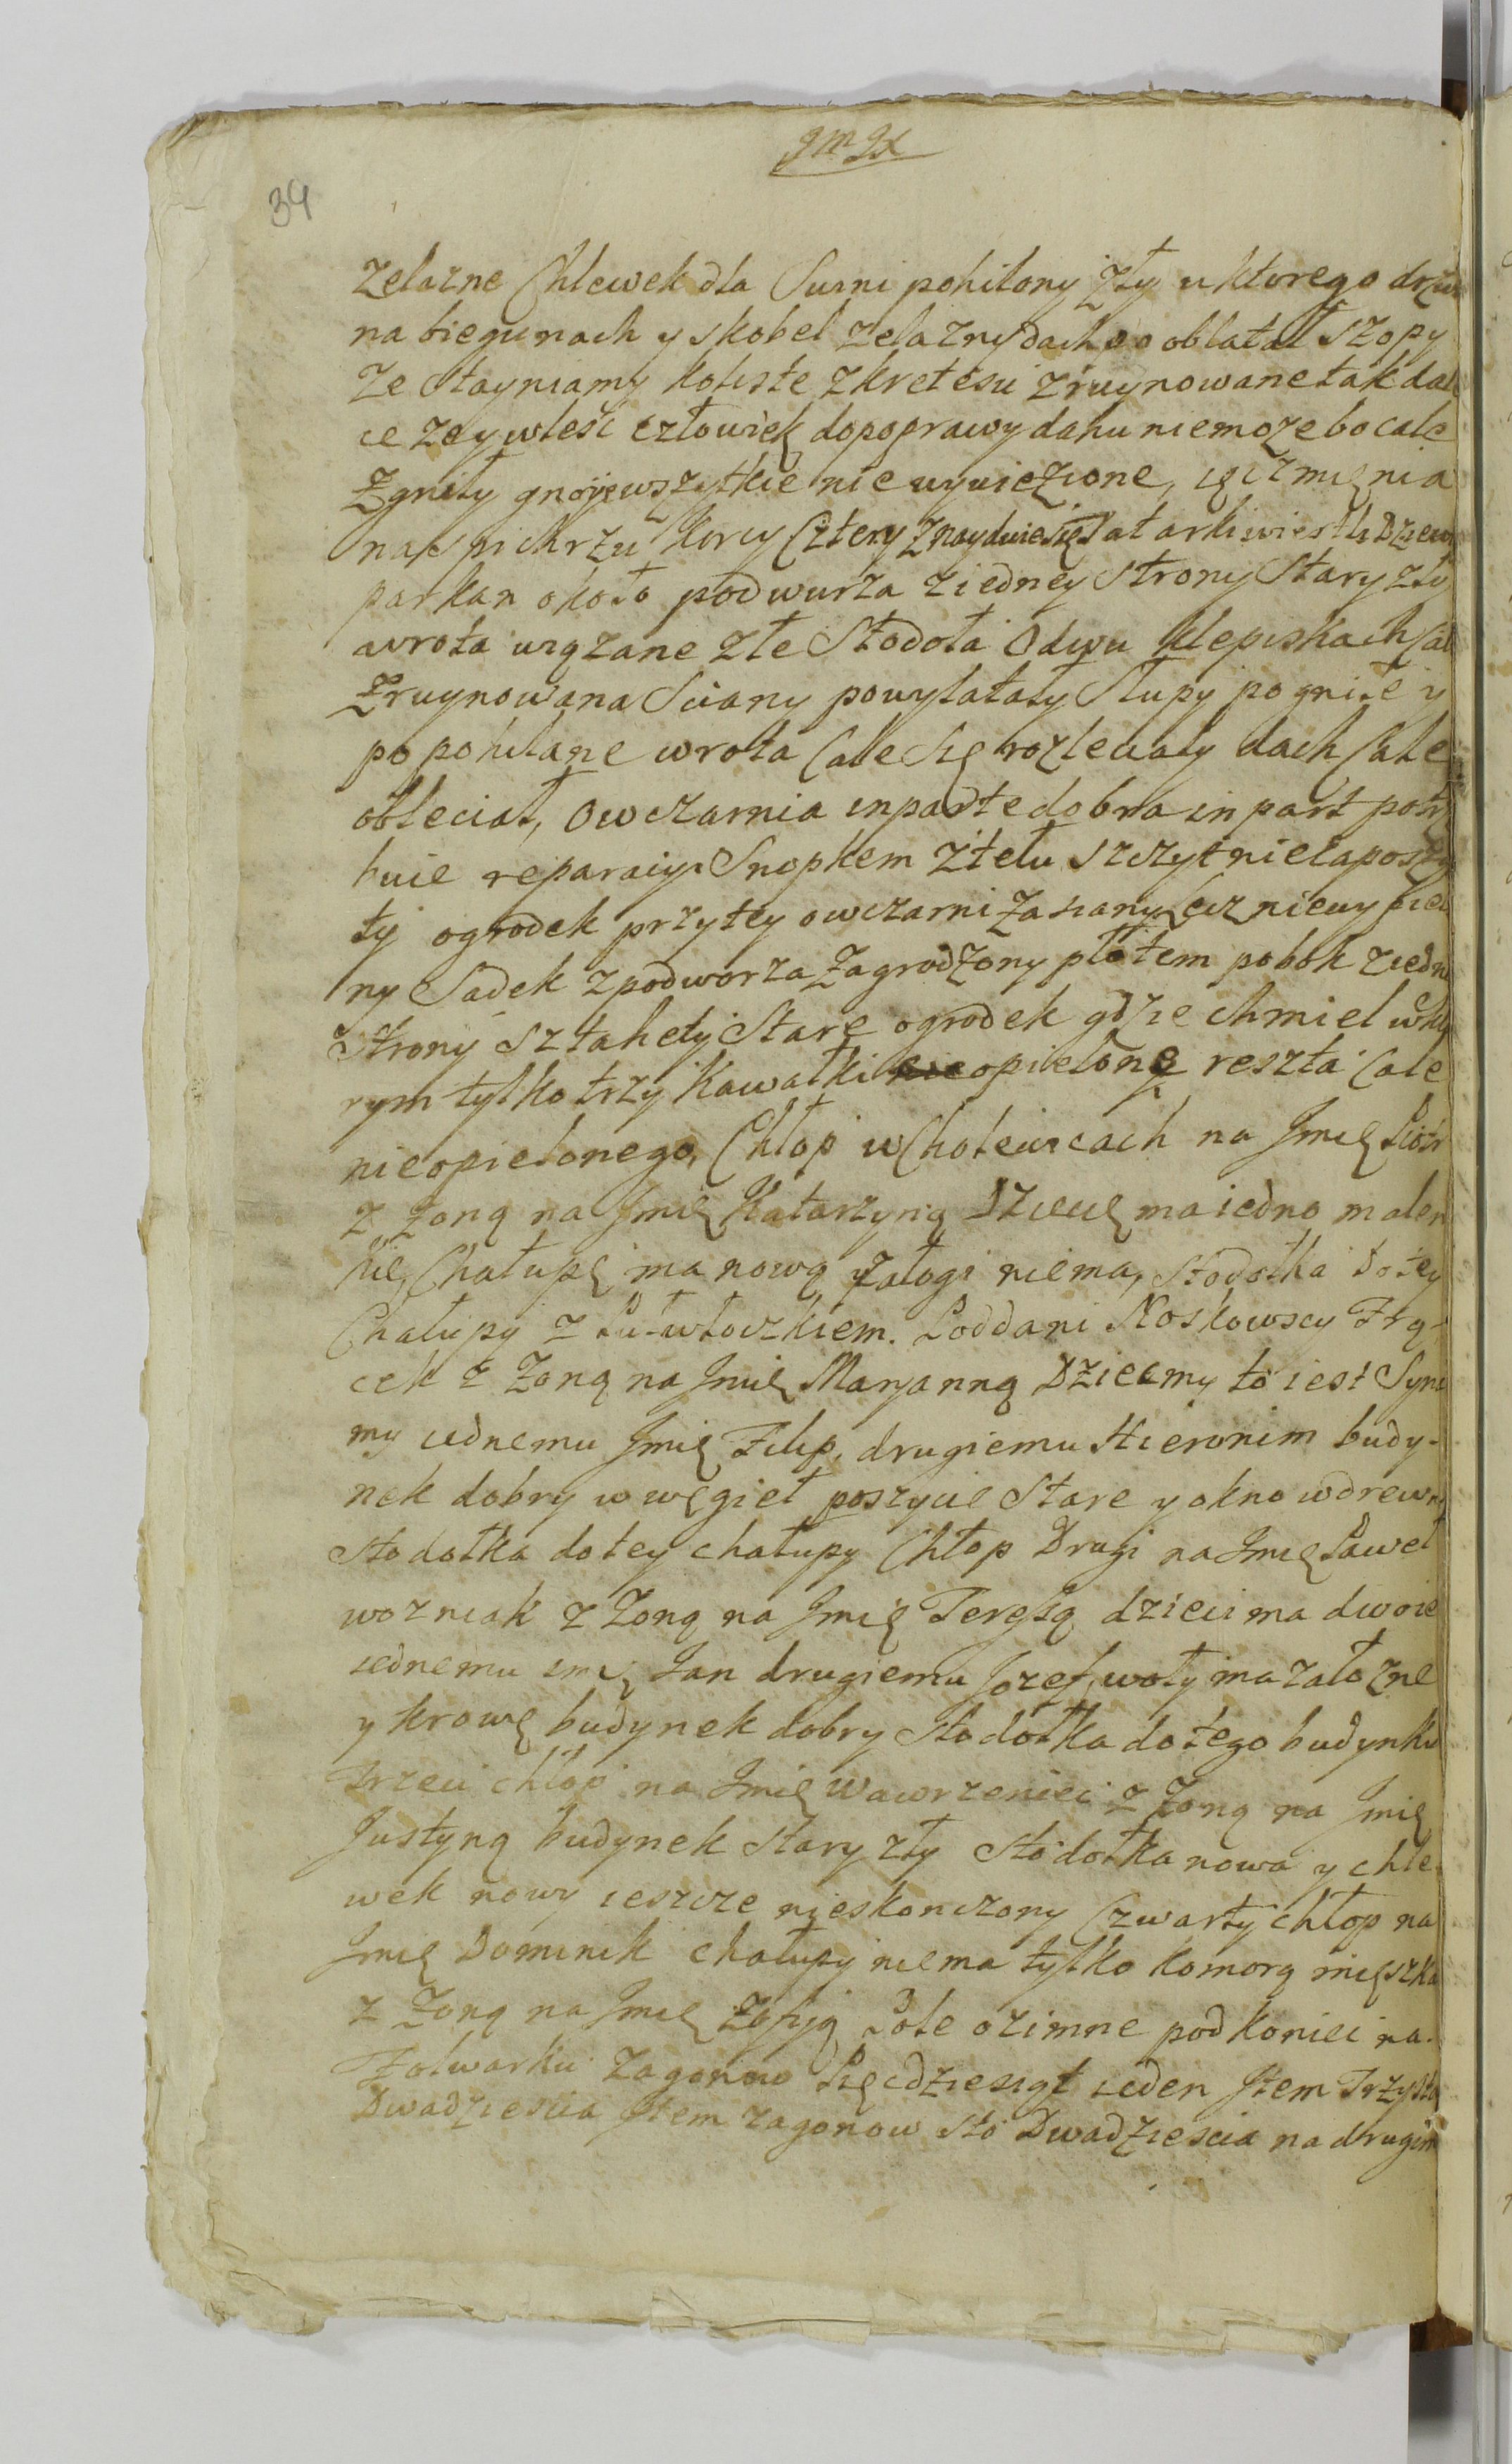 39
zelazne Chlewek dla Swini pohilony zły u ktorego drzw
na biegunach y skobel zelazny dach oblatał szopy
ze stayniamy koliste zkretesu zruynowane tak dale
ce ze y wleść człowiek dopoprawy dahu niemoze bo cale
zgniły gnoje wszytkie nie wywiezione, ięczmięnia
na Spichrzu korcy Cztery znayduie się tatarki wiertli
parkan około podwurza ziedney strony Stary zły
wrota wiązane złe Stodoła Odwu klepiskach Cale
zruynowana Sciany powylatały Słupy pogniłe y
popohilane wrota Cale się rozleciały dach Cale
obleciał, Owczarnia in parte dobra in part potrz
buie reparaciy Snopkem ztełu szczyt nie zaposzy
ty ogrodek przytey owczarni zasiany lecz nie wypiel
ny Sadek zpodworza zagrodzony płotem pobok ziedn
Strony sztahety Stare ogrodek gdzie chmiel wkto
rym tylko trzy kawałki opielone reszta Cale
nieopielonego, Chłop wChoteiucach na Jmię Piotr
z Zoną na Jmię Katarzyną Dziecię ma iedno malen
kie, Chałupę ma nową załogi niema, stodołka dotey
Chałupy z Puławłoczkiem. Poddani Noskowscy Frą-
cek z Zoną na Jmię Maryanną Dziecmy to iest Syna
my iednemu Jmię Filip, drugiemu Hieronim budy-
nek dobry w węgieł poszycie Stare y okno wdrewno
stodołka dotey chałupy Chłop Drugi na Jmię Paweł
wozniak z Zoną na Jmię Teresą dzieci ma dwoie
iednemu imię Jan drugiemu Jozef, woły ma załozne
y krowę budynek dobry stodołka dotego budynku
Trzeci chłop na Jmię Wawrzeniec z Zoną na Jmię
Justyną budynek stary zły stodołka nowa y chle-
wek nowy ieszcze nieskonczony Czwarty chłop na
Jmię Dominik chałupy niema tylko komorą mięszka
z Zoną na Jmię Zofiją Pole ozimne pod koniec na
Folwarku zagonow Pięcdziesiąt ieden Jtem Trzysta
Dwadziescia Jtem zagonow sto Dwadziescia nadrugim